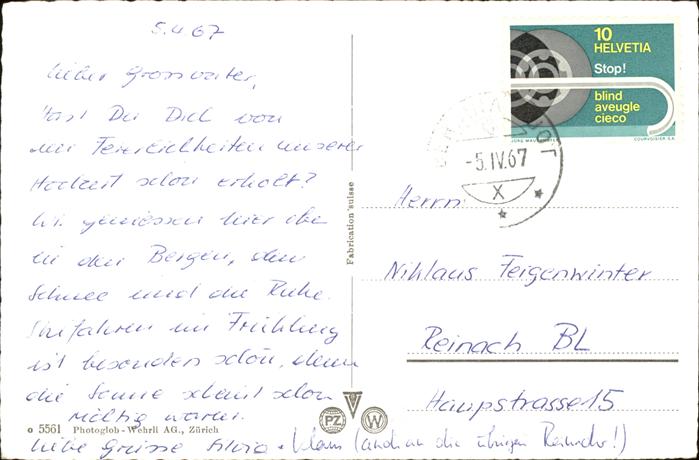 5.4.67
Lieber Grossvater,
Hast Du Dich von
den Feierlichkeiten unserer
Hochzeit schon erholt?
Wir geniessen hier oben
in den Bergen, den
Schnee und die Ruhe.
Skifahren im Frühling
ist besonders schön, denn
die Sonne scheint schon
mächtig warm.
Liebe Grüsse Silvia + Klaus (auch an die übrigen Reinacher!)
o 5561 Photoglob-Wehrli AG., Zürich
Fabrication suisse
PZ
W
10
HELVETIA
Stop!
blind
aveugle
cieco
COURVOISIER S.A.
-5.IV.67
X
Herrn
Niklaus Feigenwinter
Reinach BL
Hauptstrasse 15